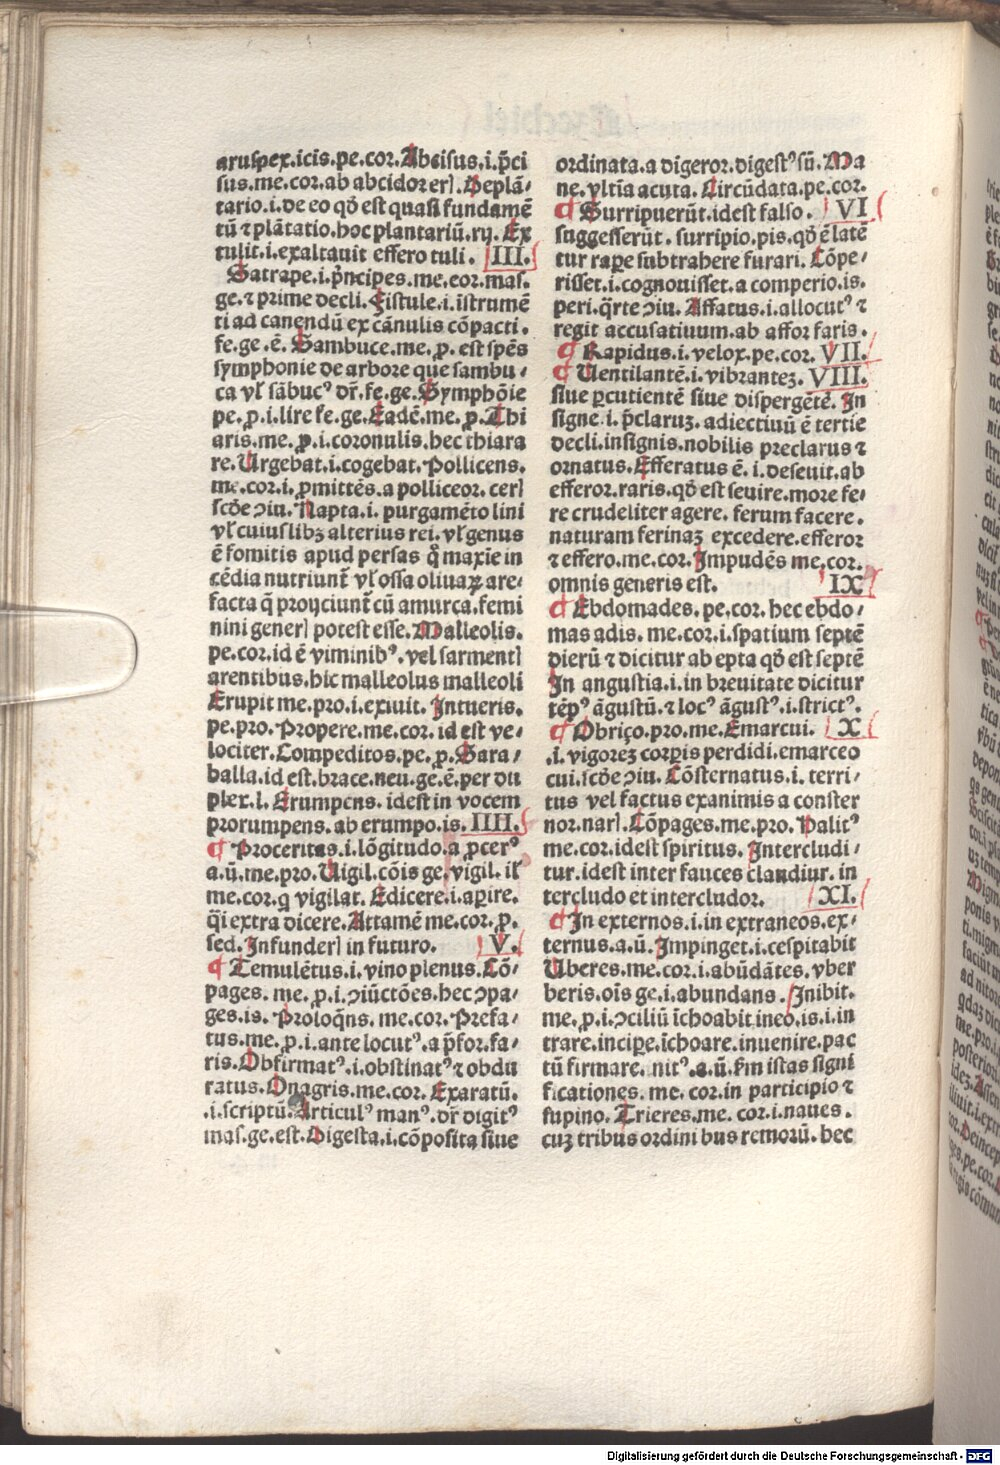 aruſpex.icis.pe.cor.Abciſus.i.p̄ci
ſus.me.cor.ab abcidor erꝭ.Deplā⸗
tario.i.de eo qd̓ eſt quaſi fundamē
tū ⁊ plātatio.hoc plantariū.rij.Ex
tulit.i.exaltauit effero tuli. III.
Satrape.i.pͥncipes.me.cor.maſ.
ge.⁊ prime decli.Fiſtule.i.īſtrumē
ti ad canendū ex cānulis cōpacti.
fe.ge.ē.Sambuce.me.ꝓ.eſt ſpēs
ſymphonie de arbore que ſambu⸗
ca vl̓ ſābucꝰ dr̄.fe.ge.Symphōie
pe.ꝓ.i.lire fe.ge.Eadē.me.ꝓ.Thi
aris.me.ꝓ.i.coronulis.hec thiara
re.Urgebat.i.cogebat.Pollicens.
me.cor.i.ꝓmittēs.a polliceor.cerꝭ
ſcd̓e ↄiu.Napta.i.purgamēto lini
vl̓ cuiuſlibꝫ alterius rei.vl̓ genus
ē fomitis apud perſas q̄ maxīe in
cēdia nutriunt̄ vl̓ oſſa oliuaꝝ are⸗
facta q̄ proijciunt̄ cū amurca.femi
nini generꝭ poteſt eſſe.Malleolis.
pe.cor.id ē viminibꝰ.vel ſarmentꝭ
arentibus.hic malleolus malleoli
Erupit me.pro.i.exiuit.Intueris.
pe.pro.Propere.me.cor.id eſt ve⸗
lociter.Compeditos.pe.ꝓ.Sara⸗
balla.id eſt.brace.neu.ge.ē.per du
plex.l.Erumpens.idest in vocem
prorumpens.ab erumpo.is. IIII.
¶ Proceritas.i.lōgitudo.a ꝓcerꝰ
a.ū.me.pro.Uigil.cōis ge.vigil.il̓
me.cor.q vigilat.Edicere.i.aꝑire.
q̄ſi extra dicere.Attamē me.cor.ꝓ.
ſed.Infunderꝭ in futuro. V.
¶ Temulētus.i.vino plenus.Cō⸗
pages.me.ꝓ.i.ↄiūctōes.hec ↄpa⸗
ges.is.Proloq̄ns.me.cor.Prefa⸗
tus.me.ꝓ.i.ante locutꝰ.a p̄for.fa⸗
ris.Obfirmatꝰ.i.obſtinatꝰ ⁊ obdu
ratus.Onagris.me.cor.Exaratū.
.i.ſcriptū.Articulꝰ manꝰ.dr̄ digitꝰ
maſ.ge.eſt.Digeſta.i.cōpoſita ſiue
ordinata.a digeror.digeſtꝰ ſū.Ma
ne.vltīa acuta.Circūdata.pe.cor.
¶ Surripuerūt.idest falſo. VI
ſuggeſſerūt.ſurripio.pis.qd̓ ē latē
tur raꝑe ſubtrahere furari.Cōpe⸗
riſſet.i.cognouiſſet.a comperio.is.
peri.q̄rte ↄiu.Affatus.i.allocutꝰ ⁊
regit accuſatiuum.ab affor faris.
¶ Rapidus.i.velox.pe.cor. VII.
¶ Uentilantē.i.vibrantez. VIII.
ſiue ꝑcutientē ſiue diſpergētē.In
ſigne.i.p̄claruꝫ.adiectiuū ē tertie
decli.inſignis.nobilis preclarus ⁊
ornatus.Efferatus ē.i.deſeuit.ab
efferor.raris.qd̓ eſt ſeuire.more fe⸗
re crudeliter agere.ferum facere.
naturam ferinaꝫ excedere.efferor
⁊ effero.me.cor.Impudēs me.cor.
omnis generis eſt. IX
¶ Ebdomades.pe.cor.hec ebdo⸗
mas adis.me.cor.i.ſpatium ſeptē
dierū ⁊ dicitur ab epta qd̓ eſt ſeptē
In anguſtia.i.in breuitate dicitur
tēpꝰ āguſtū.⁊ locꝰ āguſtꝰ.i.ſtrictꝰ.
¶ Obriço.pro.me.Emarcui. X
.i.vigorez corꝑis perdidi.emarceo
cui.ſcd̓e ↄiu.Cōſternatus.i.terri⸗
tus vel factus exanimis a conſter
nor.narꝭ.Cōpages.me.pro.Halitꝰ
me.cor.idest ſpiritus.Intercludi⸗
tur.idest inter fauces clauditur.in
tercludo et intercludor. XI.
¶ In externos.i.in extraneos.ex⸗
ternus.a.ū.Impinget.i.ceſpitabit
Uberes.me.cor.i.abūdātes.vber
beris.oīs ge.i.abundans.Inibit.
me.ꝓ.i.ↄciliū īchoabit ineo.is.i.in
trare.inciꝑe.īchoare.inuenire.pac
tū firmare.nitꝰ.a.ū.ẜm iſtas ſigni
ficationes.me.cor.in participio ⁊
ſupino.Trieres.me.cor.i.naues.
cuꝫ tribus ordinibus remorū.hec
Digitalisierung gefördert durch die Deutsche Forschungsgemeinschaft - DFG